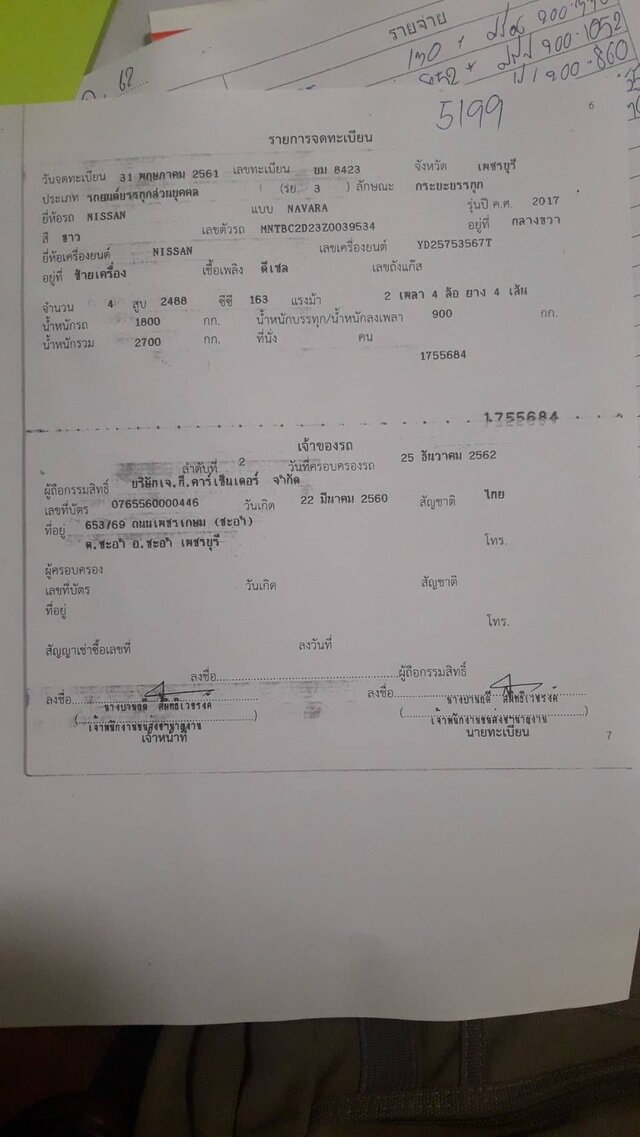 รายจ่าย
62
5199
6
รายการจดทะเบียน
วันจดทะเบียน 31 พฤษภาคม 2561 เลขทะเบียน ยม 8423 จังหวัด เพชรบุรี
ประเภท รถยนต์บรรทุกส่วนบุคคล (รย. 3 ) ลักษณะ กระบะบรรทุก
ยี่ห้อรถ NISSAN แบบ NAVARA รุ่นปี ค.ศ. 2017
สี ขาว เลขตัวรถ MNTBC2D23Z0039534 อยู่ที่ กลางขวา
ยี่ห้อเครื่องยนต์ NISSAN เลขเครื่องยนต์ YD25753567T
อยู่ที่ ซ้ายเครื่อง เชื้อเพลิง ดีเซล เลขถังแก๊ส
จำนวน 4 สูบ 2488 ซีซี 163 แรงม้า 2 เพลา 4 ล้อ ยาง 4 เส้น
น้ำหนักรถ 1800 กก. น้ำหนักบรรทุก/น้ำหนักลงเพลา 900 กก.
น้ำหนักรวม 2700 กก. ที่นั่ง คน
1755684
1755684
เจ้าของรถ
ลำดับที่ 2 วันที่ครอบครองรถ 25 ธันวาคม 2562
ผู้ถือกรรมสิทธิ์ บริษัทเจ.ที.คาร์เซ็นเตอร์ จำกัด
เลขที่บัตร 0765560000446 วันเกิด 22 มีนาคม 2560 สัญชาติ ไทย
ที่อยู่ 653/69 ถนนเพชรเกษม (ชะอำ)
ต.ชะอำ อ.ชะอำ เพชรบุรี โทร.
ผู้ครอบครอง
เลขที่บัตร วันเกิด สัญชาติ
ที่อยู่
โทร.
สัญญาเช่าซื้อเลขที่ ลงวันที่
ลงชื่อ ผู้ถือกรรมสิทธิ์
ลงชื่อ ลงชื่อ
เจ้าพนักงานขนส่งชำนาญงาน เจ้าพนักงานขนส่งชำนาญงาน
เจ้าหน้าที่ นายทะเบียน
7